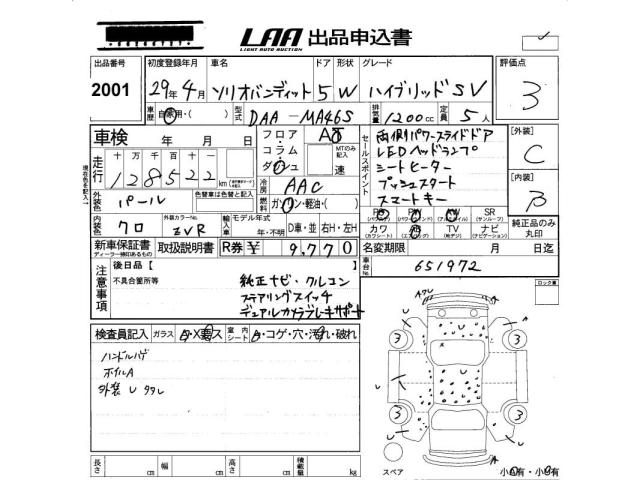 LAA 出品申込書
LIGHT AUTO AUCTION
出品番号 初度登録年月 車名 ドア 形状 グレード 評価点
2001 29年4月 ソリオバンディット 5 W ハイブリッドSV 3
車歴 自家用・( ) 型式 DAA-MA46S 排気量 1200cc 定員 5人
車検 年 月 日
フロア コラム ダッシュ AT MTのみ記入 速
セールスポイント 両側パワースライドドア
LEDヘッドランプ
シートヒーター
プッシュスタート
スマートキー
[外装] C
[内装] B
現在色を記入
走行 十 万 千 百 十
128522 km
冷房 AAC
外装色 パール 色替車は色替と記入 燃料 ガソリン・軽油・( )
PS PW AW SR (サンルーフ) 純正品のみ
内装色 クロ 外装カラーNo. ZVR 輸入車 モデル年式 年・不明 D車・並 右H・左H
カワ (カワシート) TV (地デジ) ナビ (ナビゲーション) 丸印
新車保証書 取扱説明書 R券 ¥ 9,770
ディーラー捺印あるもの
名変期限 月 日迄
車台No. 651972
注意事項 後日品 [ ]
不具合箇所等
純正ナビ・クルコン
ステアリングスイッチ
デュアルカメラブレーキサポート
ロック車
検査員記入 ガラス A・X・ミス 室内シート A・コゲ・穴・汚れ・破れ
ハンドルハゲ
ホイルA
外装 U タタレ
3 3
3 3
長さ cm 幅 cm 高さ cm 積載量 kg
スペア